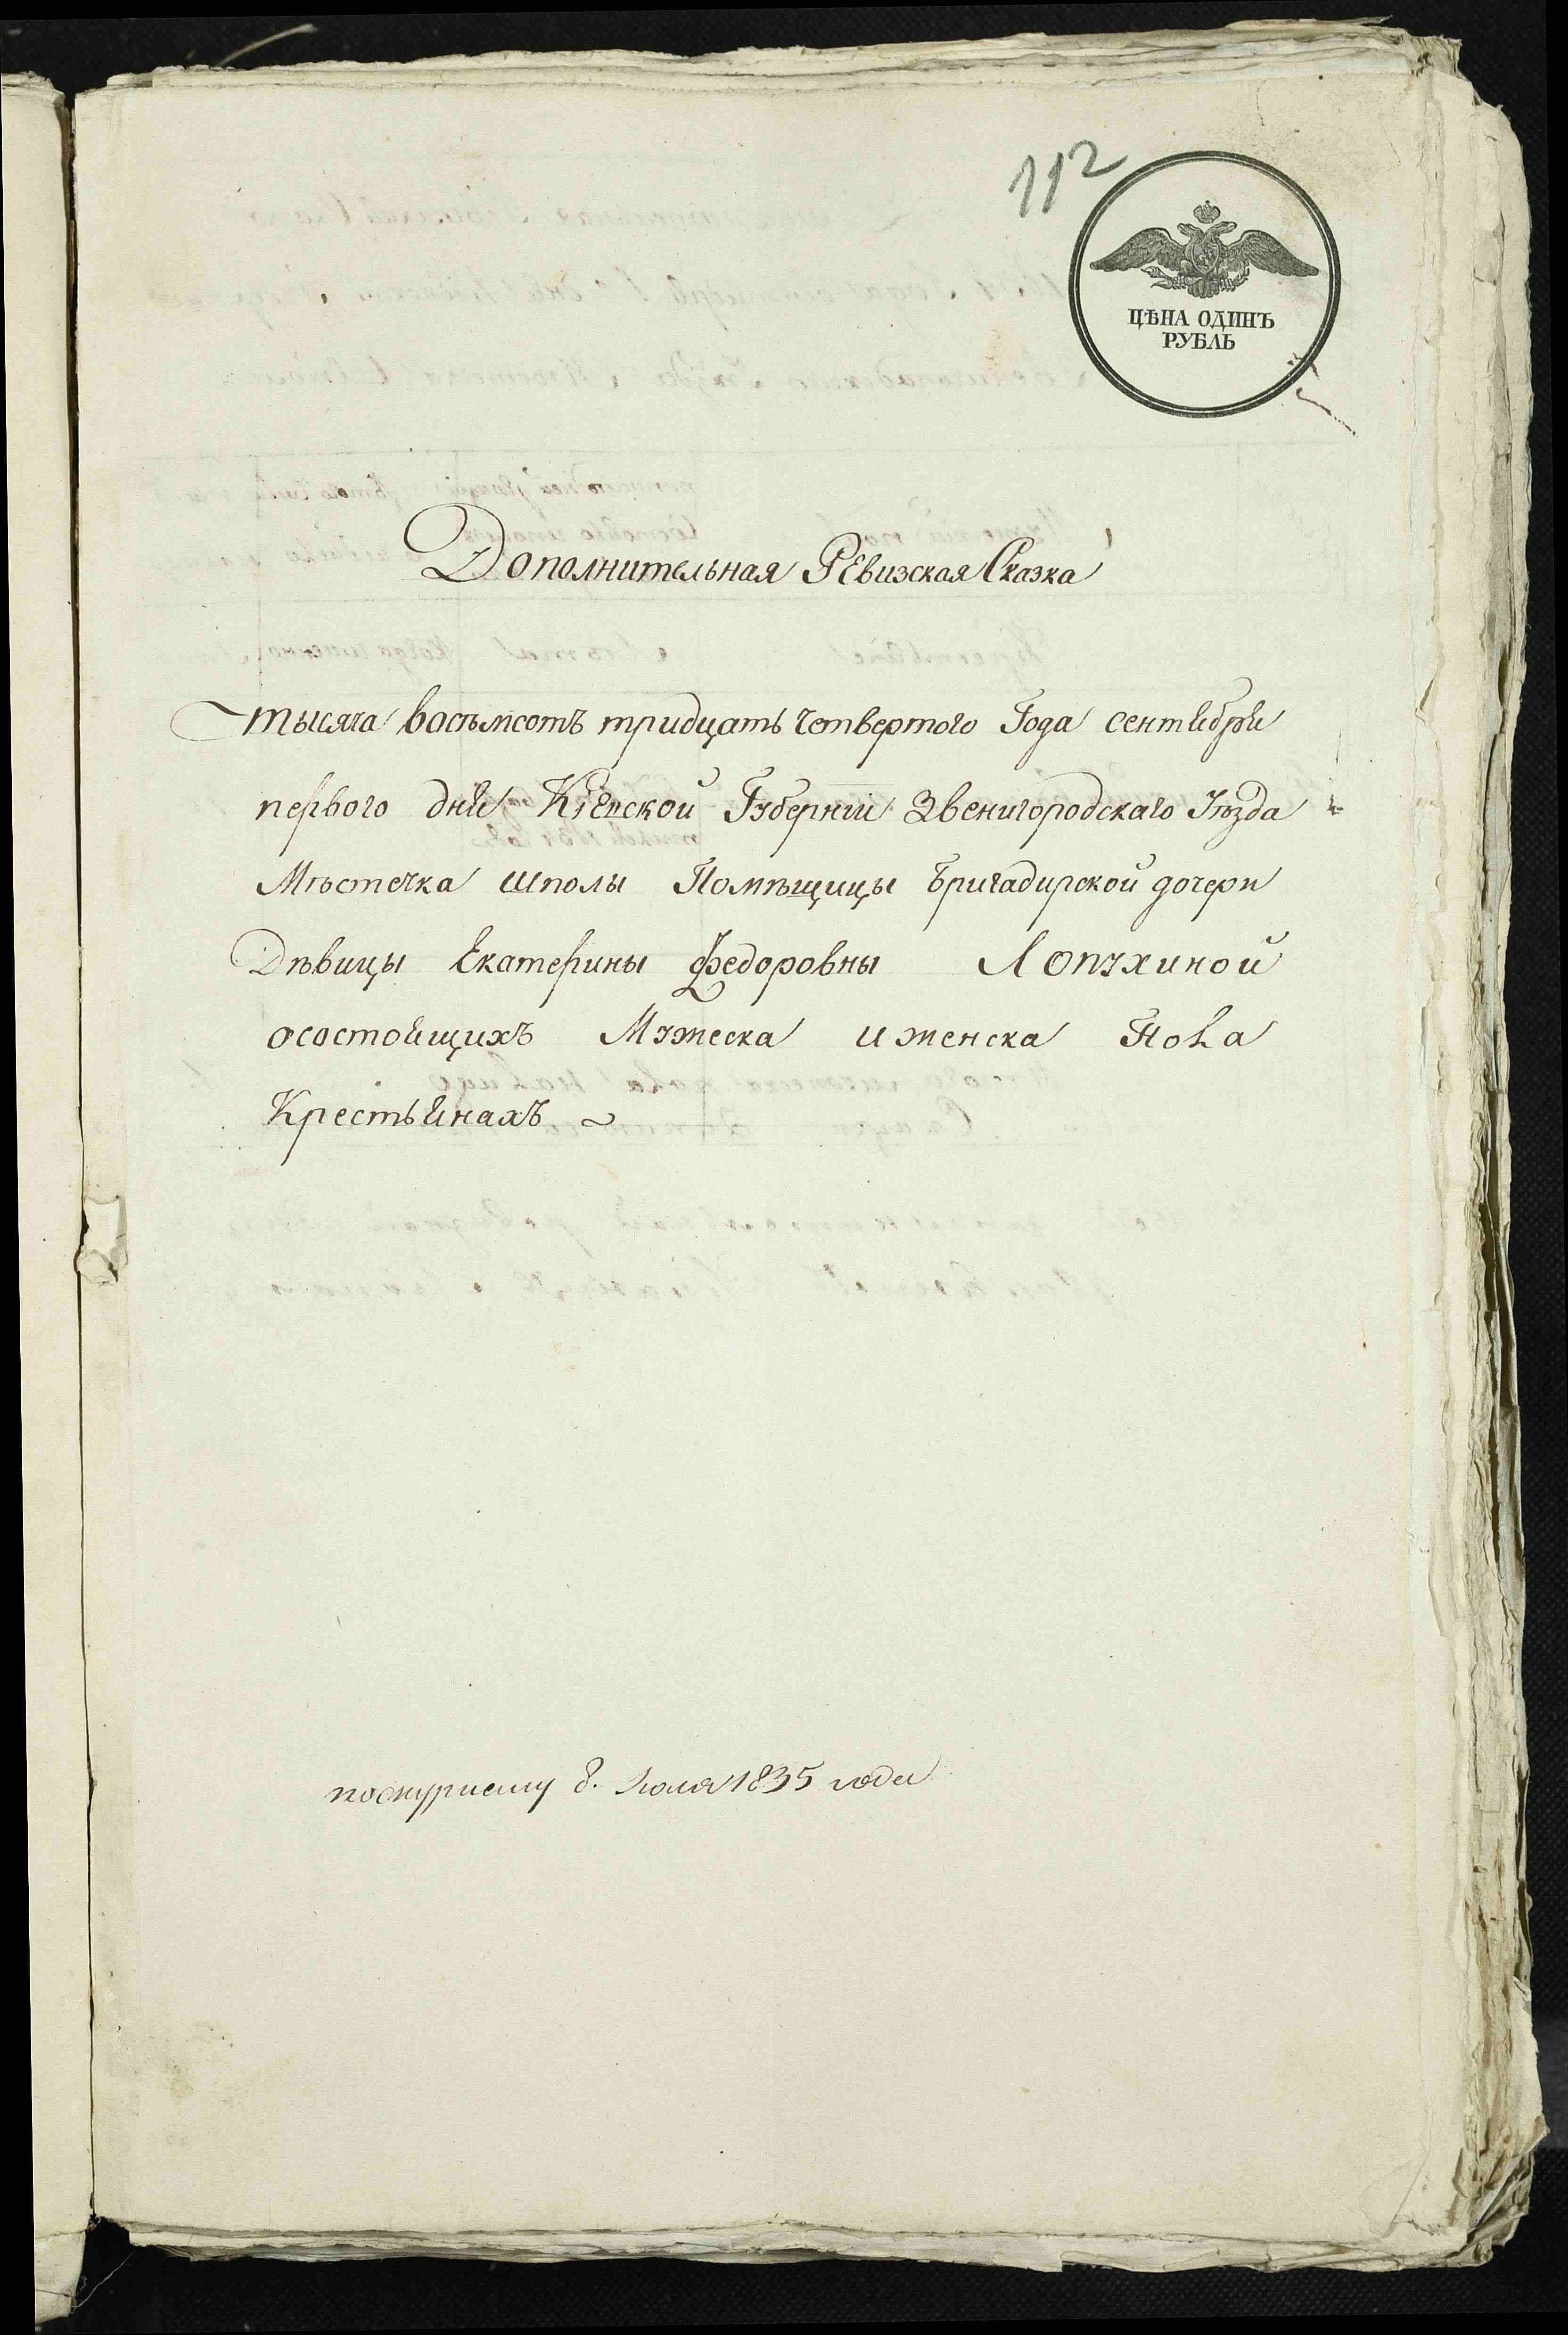 112
ЦѢНА ОДИНЪ
РУБЛЬ
Дополнительная Ревизская Сказка
тысяча восъмсотъ тридцать четвертого Года сентября
первого дня Кіевской Губерніи Звенигородскаго Уѣзда
Мѣстечка Шполы Помѣщицы Бригадирской дочери
Дѣвицы Екатерины Федоровны Лопухиной
осостоящихъ Мужеска иженска Пола
Крестьянахъ
8. Іюля 1835 года